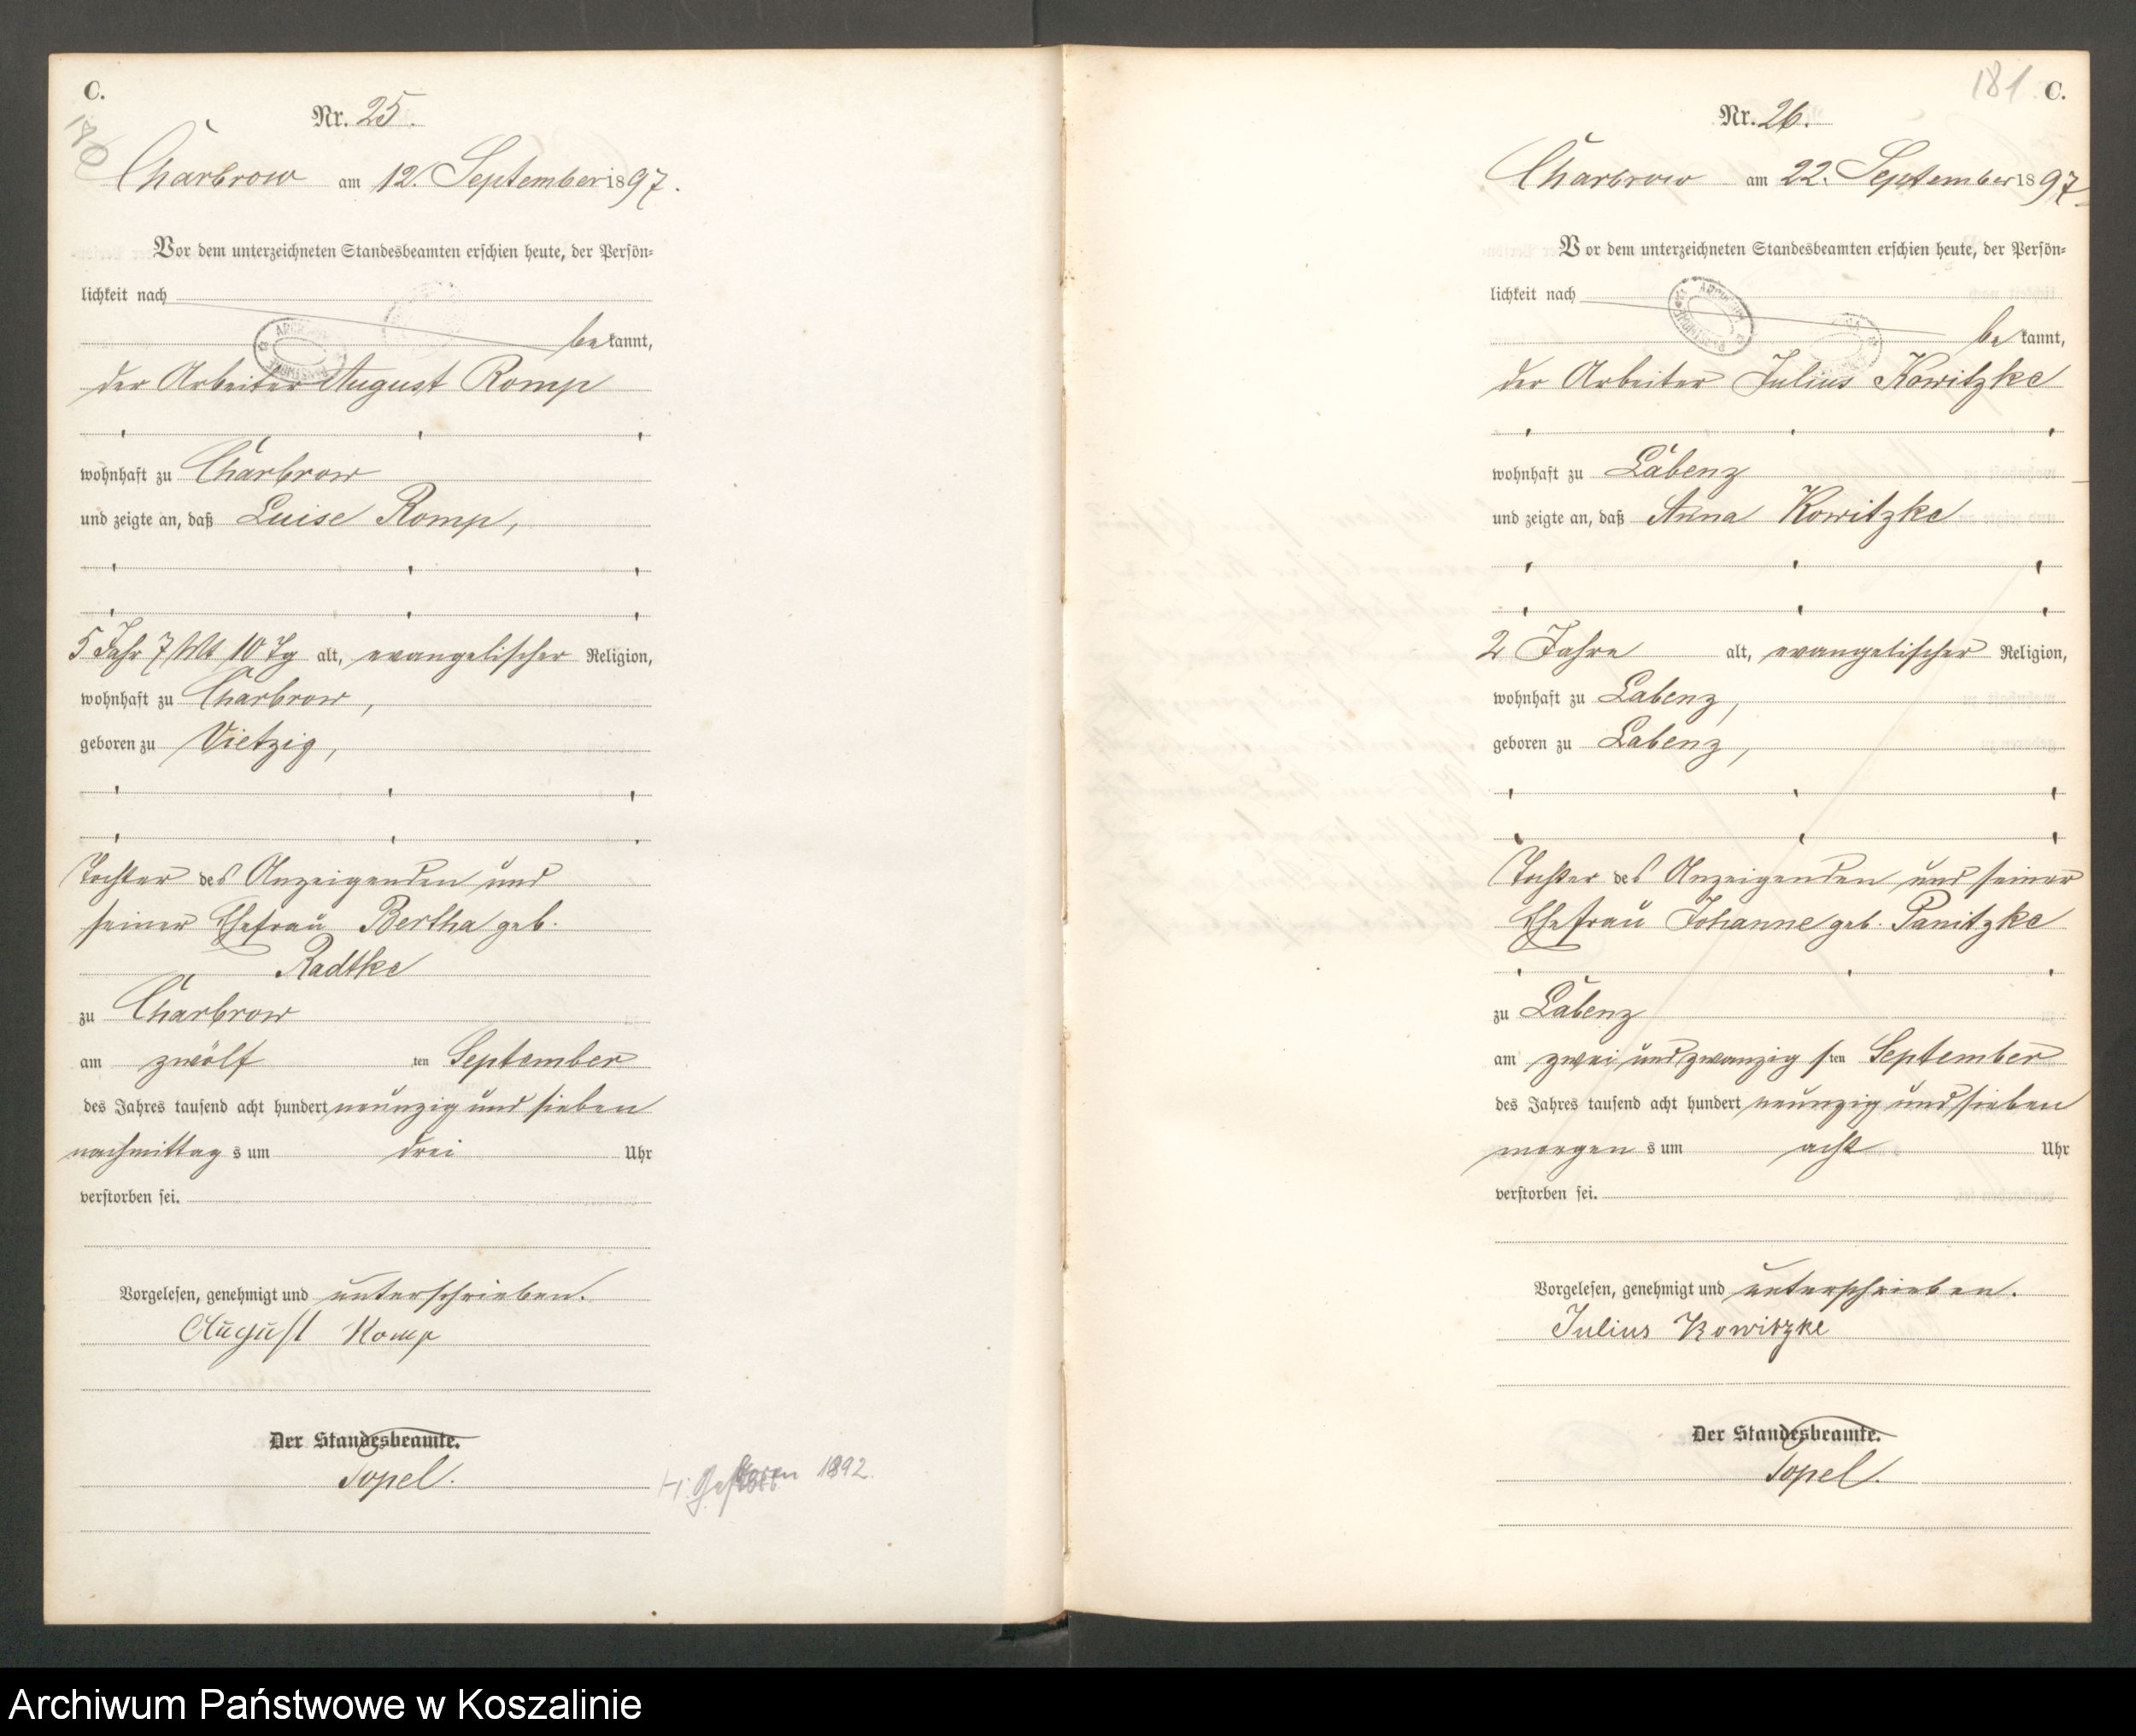 C.
180
Nr. 25.
Charbrow am 12. September 1897.
Vor dem unterzeichneten Standesbeamten erschien heute, der Persön-
lichkeit nach
bekannt,
der Arbeiter August Romp
wohnhaft zu Charbrow
und zeigte an, daß Luise Romp,
5 Jahr 7 Mt 10 Tg alt, evangelischer Religion,
wohnhaft zu Charbrow,
geboren zu Vietzig,
Tochter des Anzeigenden und
seiner Ehefrau Bertha geb.
Radtke
zu Charbrow
am zwölf ten September
des Jahres tausend acht hundert neunzig und sieben
nachmittag s um drei Uhr
verstorben sei.
Vorgelesen, genehmigt und unterschrieben.
August Romp
Der Standesbeamte.
Topel.
1892.
181 C.
Nr. 26.
Charbrow am 22. September 1897
Vor dem unterzeichneten Standesbeamten erschien heute, der Persön-
lichkeit nach
bekannt,
der Arbeiter Julius Kowitzke
wohnhaft zu Labenz
und zeigte an, daß Anna Kowitzke
2 Jahre alt, evangelischer Religion,
wohnhaft zu Labenz,
geboren zu Labenz,
Tochter des Anzeigenden und seiner
Ehefrau Johanne geb. Panitzke
zu Labenz
am zwei und zwanzig sten September
des Jahres tausend acht hundert neunzig und sieben
morgen s um acht Uhr
verstorben sei.
Vorgelesen, genehmigt und unterschrieben.
Julius Kowitzke
Der Standesbeamte.
Topel.
Archiwum Państwowe w Koszalinie